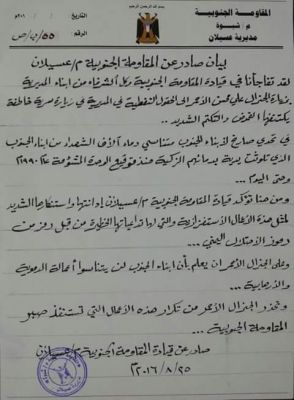 بسم الله الرحمن الرحيم
المقاومة الجنوبية
م / شبوة
مديرية عسيلان
التاريخ / / ٢٠١م
الرقم ٥٥/
بيان صادر عن المقاومة الجنوبية م/عسيلان
لقد تفاجأنا في قيادة المقاومة الجنوبية وكل الشرفاء من أبناء المديرية
بزيارة الجنرال علي محسن الأحمر إلى الحقول النفطية في المديرية في زيارة سرية خاطفة
يكتنفها الغموض والتكتم الشديد ..
في تحدي صارخ لأبناء الجنوب وتناسي دماء آلاف الشهداء من أبناء الجنوب
الذي تلوثت يديه بدمائهم الزكية منذ توقيع الوحدة المشؤمة عام ١٩٩٠م
وحتى اليوم ...
ومن هنا تؤكد قيادة المقاومة الجنوبية م/عسيلان إدانتها واستنكارها الشديد
لمثل هذه الأعمال الاستفزازية والتي لها تداعياتها الخطيرة من قبل رمز من
رموز الاحتلال اليمني ...
وعلى الجنرال الأحمر أن يعلم بأن أبناء الجنوب لن يتناسوا أعماله الدموية
والإرهابية ...
ونحذر الجنرال الأحمر من تكرار هذه الأعمال التي تستنفذ صبر
المقاومة الجنوبية ...
صادر عن قيادة المقاومة الجنوبية م/عسيلان
٢٠١٦/٨/٢٥م